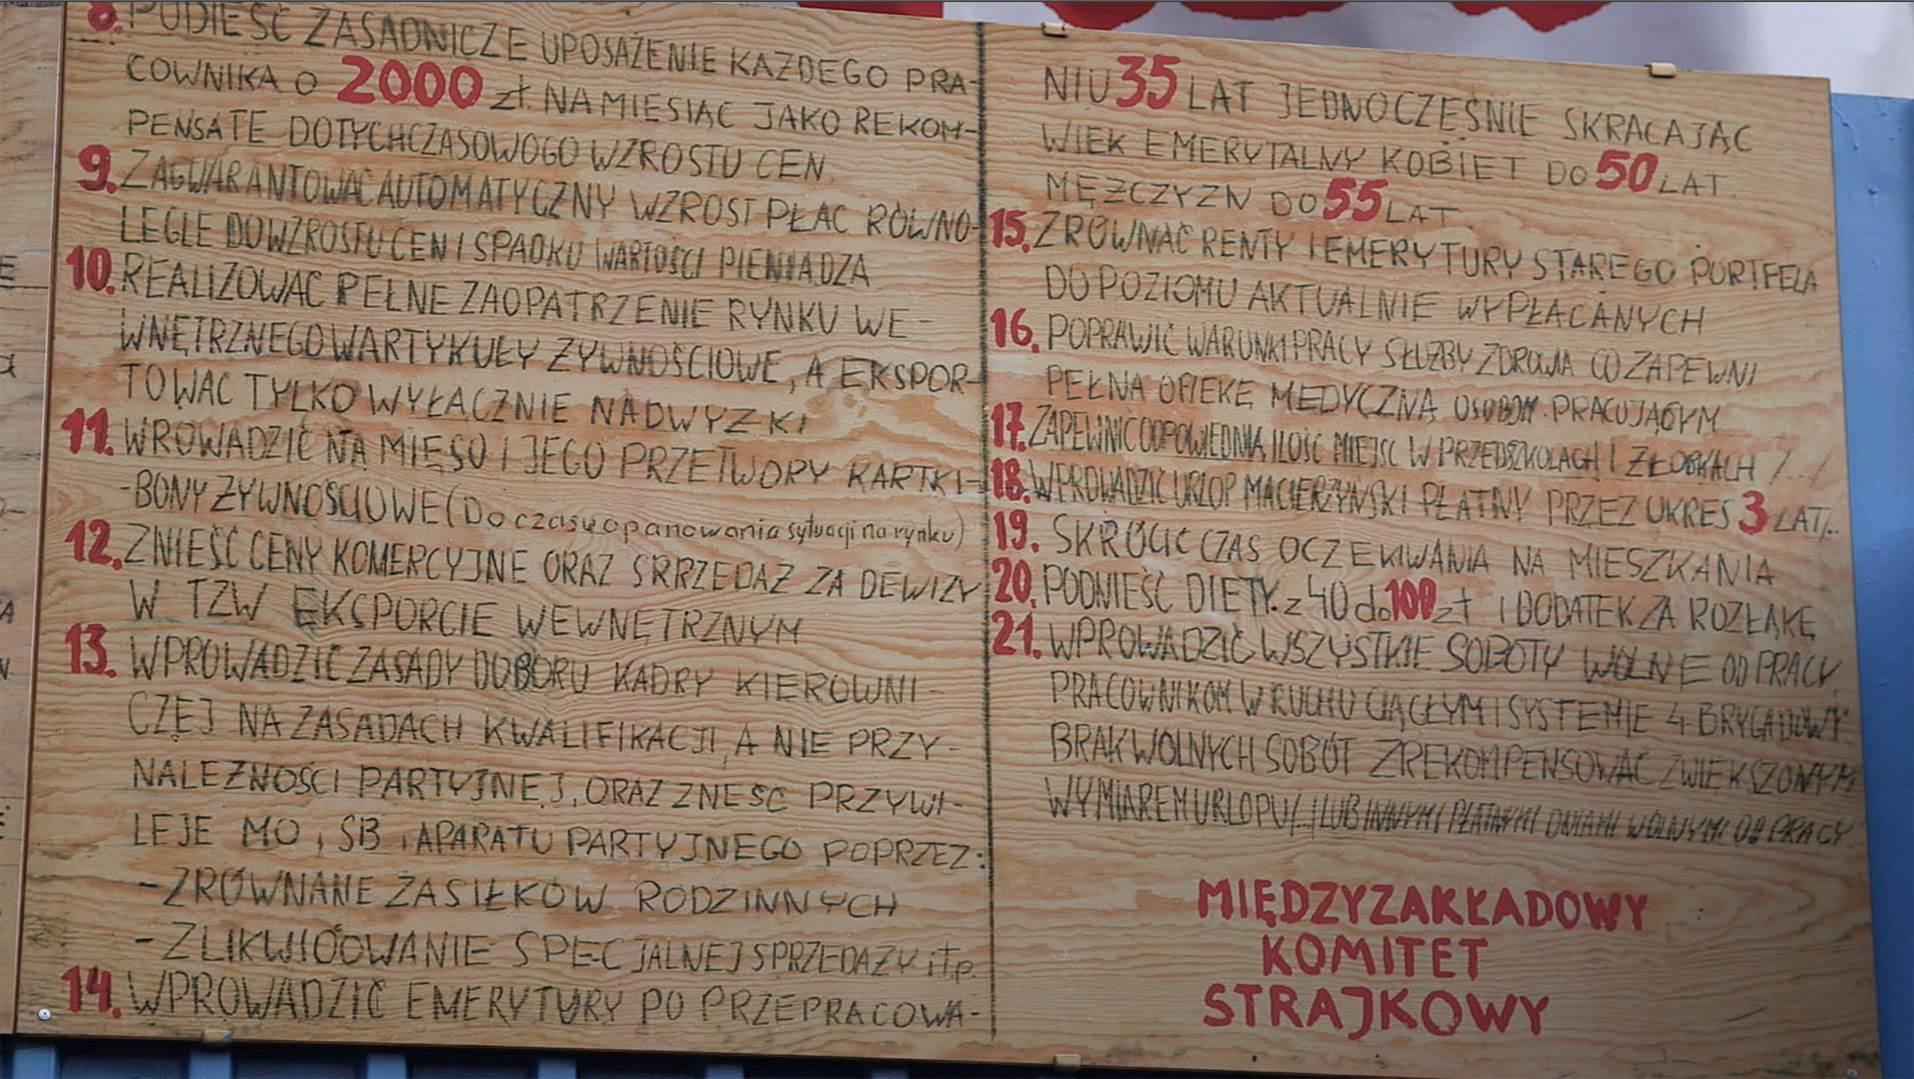 8. PODIEŚĆ ZASADNICZE UPOSAŻENIE KAŻDEGO PRA-
COWNIKA O 2000 zł. NA MIESIĄC JAKO REKOM-
PENSATE DOTYCHCZASOWOGO WZROSTU CEN.
9. ZAGWARANTOWAĆ AUTOMATYCZNY WZROST PŁAC RÓWNO-
LEGLE DO WZROSTU CEN I SPADKU WARTOŚCI PIENIĄDZA
10. REALIZOWAĆ PEŁNE ZAOPATRZENIE RYNKU WE-
WNĘTRZNEGO W ARTYKUŁY ŻYWNOŚCIOWE, A EKSPOR-
TOWAĆ TYLKO WYŁĄCZNIE NADWYŻKI
11. WROWADZIĆ NA MIĘSO I JEGO PRZETWORY KARTKI-
-BONY ŻYWNOŚCIOWE (Do czasu opanowania sytuacji na rynku)
12. ZNIEŚĆ CENY KOMERCYJNE ORAZ SRRZEDAŻ ZA DEWIZY
W TZW EKSPORCIE WEWNĘTRZNYM
13. WPROWADZIĆ ZASADY DOBORU KADRY KIEROWNI-
CZEJ NA ZASADACH KWALIFIKACJI, A NIE PRZY-
NALEŻNOŚCI PARTYJNEJ, ORAZ ZNEŚĆ PRZYWI-
LEJE MO, SB i APARATU PARTYJNEGO POPRZEZ:
- ZRÓWNANE ZASIŁKÓW RODZINNYCH
- ZLIKWIDOWANIE SPECJALNEJ SPRZEDAŻY itp.
14. WPROWADZIĆ EMERYTURY PO PRZEPRACOWA-
NIU 35 LAT JEDNOCZEŚNIE SKRACAJĄC
WIEK EMERYTALNY KOBIET DO 50 LAT.
MĘŻCZYZN DO 55 LAT
15. ZRÓWNAĆ RENTY I EMERYTURY STAREGO PORTFELA
DO POZIOMU AKTUALNIE WYPŁACANYCH
16. POPRAWIĆ WARUNKI PRACY SŁUŻBY ZDROWIA CO ZAPEWNI
PEŁNA OPIEKĘ MEDYCZNĄ OSOBOM PRACUJĄCYM
17. ZAPEWNIĆ ODPOWIEDNIĄ ILOŚĆ MIEJSC W PRZEDSZKOLACH I ŻŁOBKACH /.../
18. WPROWADZIĆ URLOP MACIERZYŃSKI PŁATNY PRZEZ OKRES 3 LAT/..
19. SKRÓCIĆ CZAS OCZEKIWANIA NA MIESZKANIA
20. PODNIEŚĆ DIETY. z 40 do 100 zł I DODATEK ZA ROZŁĄKĘ
21. WPROWADZIĆ WSZYSTKIE SOBOTY WOLNE OD PRACY.
PRACOWNIKOM W RUCHU CIĄGŁYM I SYSTEMIE 4-BRYGADOWY
BRAK WOLNYCH SOBÓT ZREKOMPENSOWAĆ ZWIĘKSZONYM
WYMIAREM URLOPU /../ LUB INNYMI PŁATNYMI DNIAMI WOLNYMI OD PRACY.
MIĘDZYZAKŁADOWY
KOMITET
STRAJKOWY